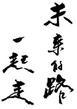 未来的路
一起走